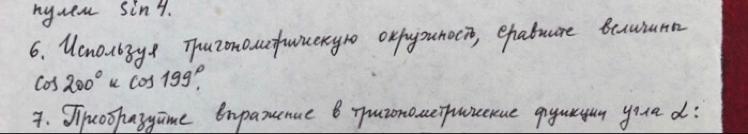 нулем sin 4.
6. Используя тригонометрическую окружность, сравните величины
cos 200° и cos 199°.
7. Преобразуйте выражение в тригонометрические функции угла α: